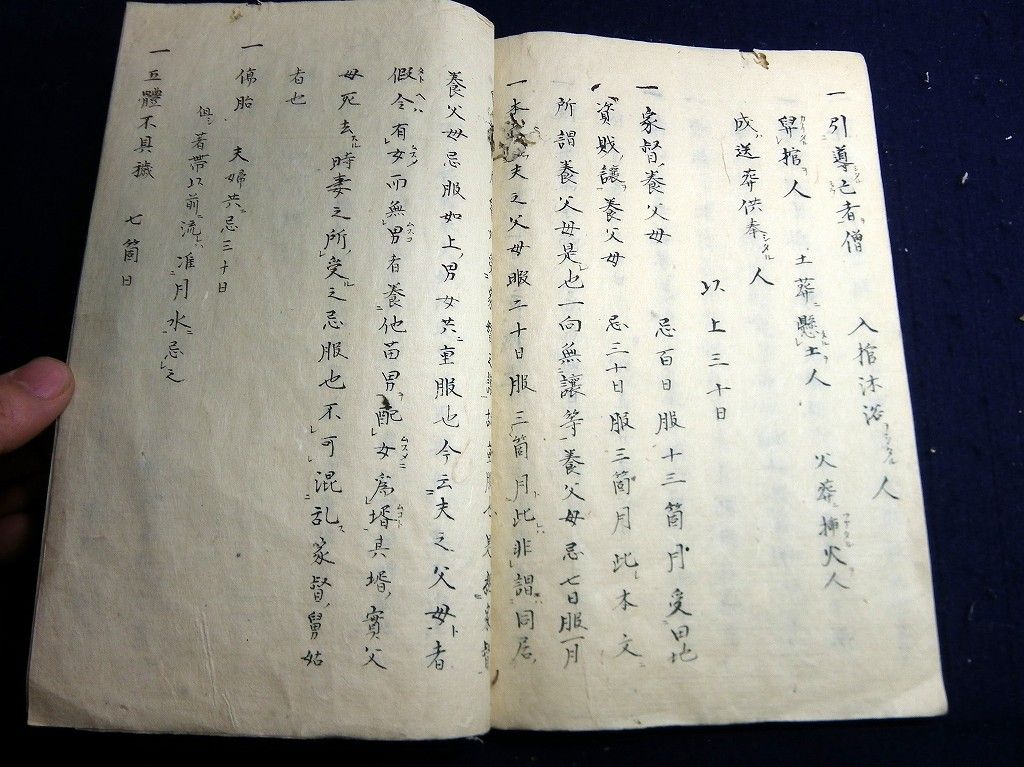 一引導亡者僧　入棺沐浴人
舁棺人　土葬懸土人　火葬挿火人
成送葬供奉人
以上三十日
一家督養父母　忌百日服十三箇月受田地
資財讓養父母　忌三十日服三箇月此本文
所謂養父母是也一向無讓等養父母忌七日服一月
一本文夫之父母暇三十日服三箇月此非謂同居
養父母忌服如上男女共重服也今云夫之父母者
假令有女而無男者養他苗男配女爲壻其壻實父
母死去時妻之所受之忌服也不可混乱家督舅姑
者也
一傷胎　夫婦共忌三十日
但著帯以前流准月水忌之
一五體不具穢　七箇日